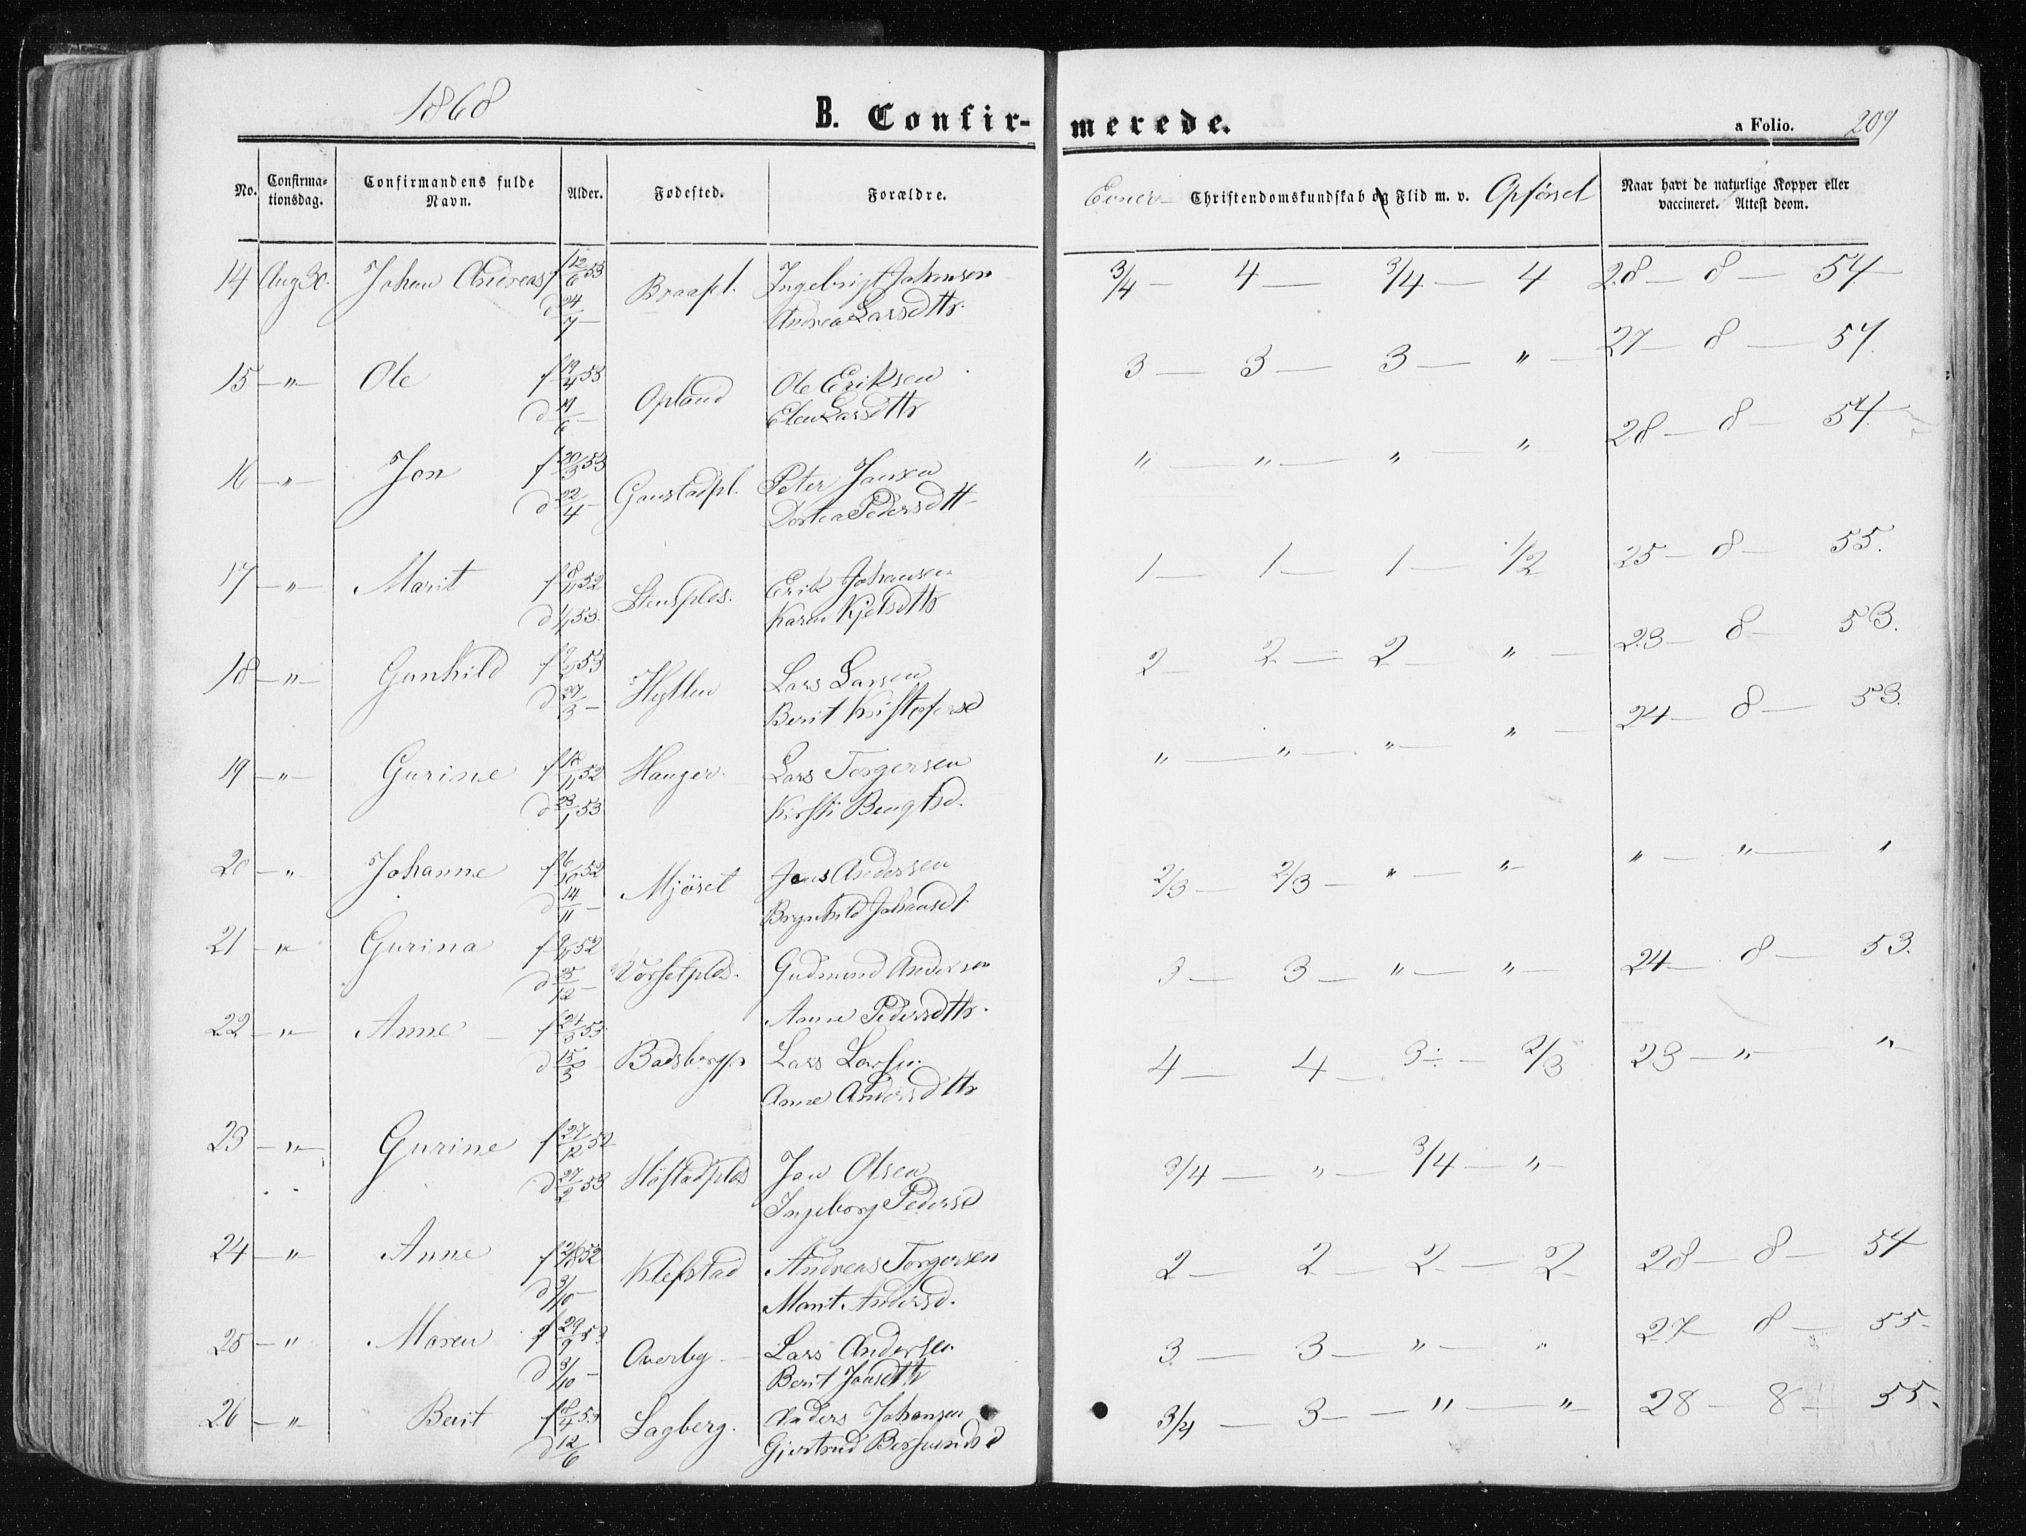 1868
B. Confir-
merede.
a Folio.
209
No.
Confirma-
tionsdag.
Confirmandens fulde
Navn.
Alder.
Fødested.
Forældre.
Evner
Christendomskundskab og Flid m. v.
Opførsel
Naar havt de naturlige Kopper eller
vaccineret. Attest deom.
14 Aug 30. Johan Andreas f 12/6 53 Braapl. Ingebrigt Johansen 3/4 — 4 — 3/4 — 4 28 — 8 — 54
d 24/7 — Andrea Larsdttr.
15 — " — Ole f 19/4 53 Opland Ole Eriksen 3 — 3 — 3 — " — 27 — 8 — 54.
d 19/6 Elen Larsdttr
16 — " — Jon f 20/3 53 Gaustadpl. Peter Jansen " — " — " — " — 28 — 8 — 54.
d 22/4 — Dortea Pedersdtt
17 — " — Marit f 8/11 52 Stenspls. Erik Johansen 1 — 1 — 1 — 1/2 25 — 8 — 55.
d 1/1 53. Karen Kjelsdttr
18 — " — Gunhild 53 Hyllen Lars Larsen 2 — 2 — 2 — " — 23 — 8 — 53.
d 27/3 — Berit Kristofersd
19 — " — Gurine f 18/11 52 Hauger Lars Torgersen " — " — " — " — 24 — 8 — 53.
d 23/1 53 Kirsti Bengtsd.
20 — " Johanne f 6/10 52 Mjøset Jens Andersen 2/3 — 2/3 — " — " — " — " — "
d 14/11 — Brynhild Johansd.
21 — " Gurina 52 Vorsetpls. Gudmund Andersen 3 — 3 — " — " — 24 — 8 — 53.
d 25/12 — Anne Pedersdttr.
22 — " — Anne — f 24/3 53 Badsbergp Lars Larsen 4 — 4 — 3÷ — 2/3 23 — " — "
d 15/3 Anne Andersdttr
23 — " — Gurine f 27/12 52 Høstadpls Jon Olsen 3/4 — " — 3/4 — " —
d 27/2 53 Ingeborg Pedersd
24 — " Anne 52 Klefstad Andreas Torgersen 2 — 2 — 2 — 2 28 — 8 — 54
d 3/10 — Marit Andersd.
25 — " Maren f 29/9 53 Overby — Lars Andersen 3 — 3 — " — " 27 — 8 — 55
d 3/10 — Berit Jonsdttr
26 — " Berit f 18/4 53 Sagberg. Anders Johansen 3/4 — 3 — " — " 28 — 8 — 55.
d 12/6 Gjertrud Bersvendsd